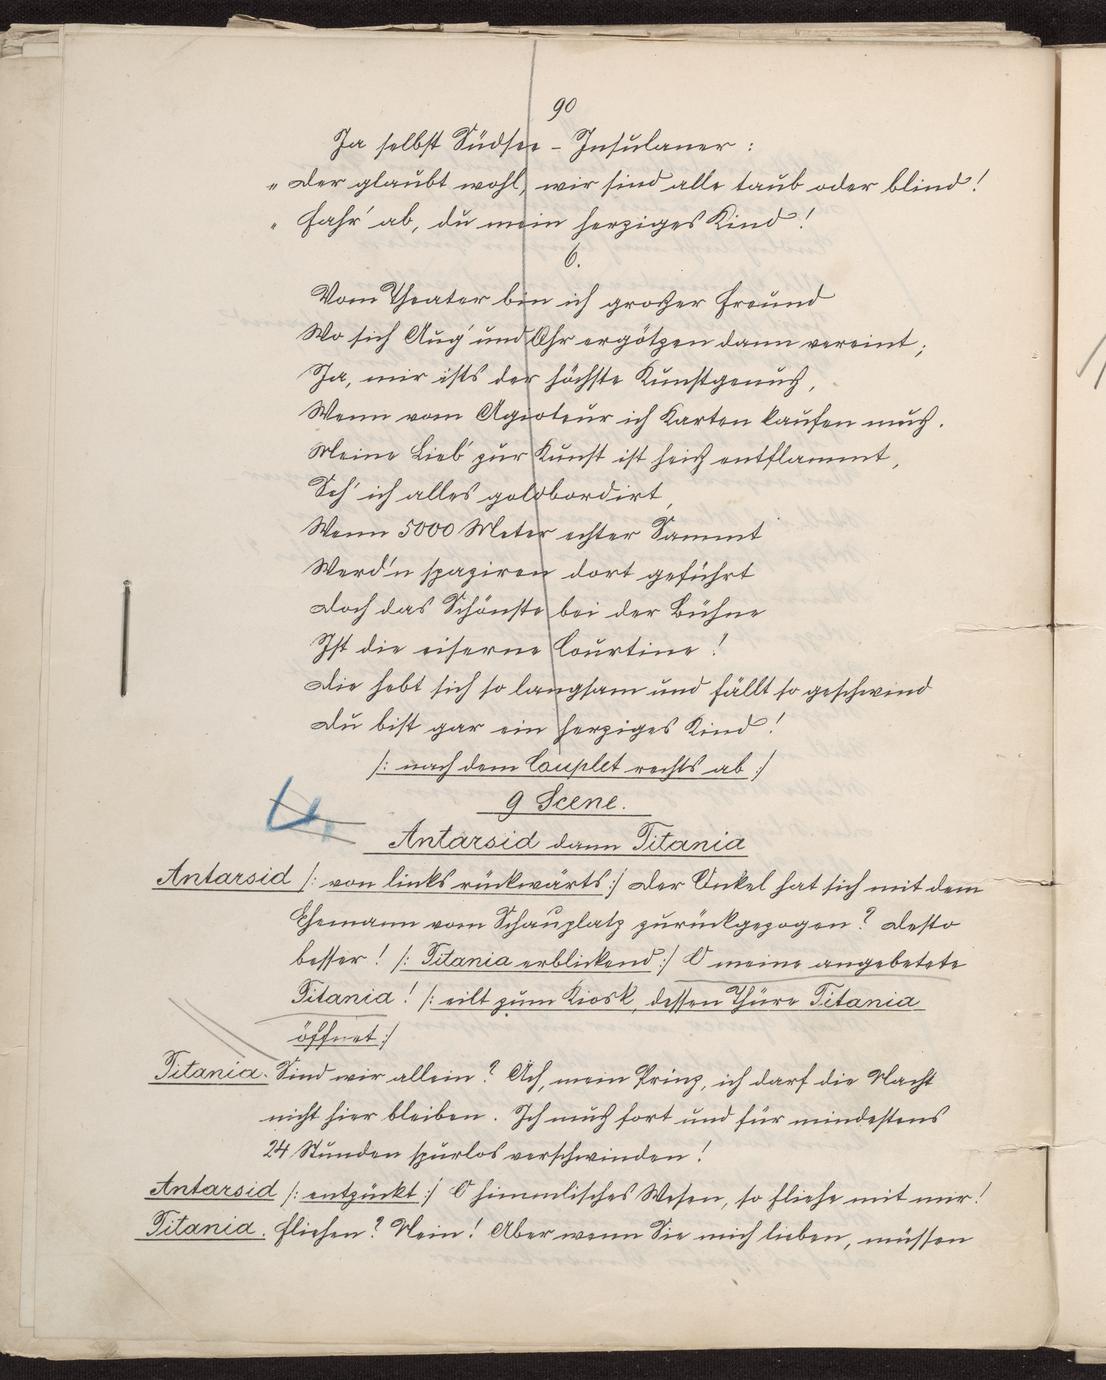 90
Ja selbst Südsee - Insulaner :
„ Der glaubt wohl, wir sind alle taub oder blind !
„ Fahr' ab, du mein herziges Kind !
6.
Vom Theater bin ich großer Freund
Wo sich Aug' und Ohr ergötzen dann vereint ;
Ja, mir ists der höchste Kunstgenuß,
Wenn vom Agioteur ich Karten kaufen muß.
Meine Lieb' zur Kunst ist heiß entflammt,
Seh' ich alles goldbordirt,
Wenn 5000 Meter echter Sammt
Werd'n spaziren dort geführt
Doch das Schönste bei der Bühne
Ist die eiserne Courtine !
Die hebt sich so langsam und fällt so geschwind
Du bist gar ein herziges Kind !
/: nach dem Couplet rechts ab :/
9 Scene.
Antarsid dann Titania
Antarsid /: von links rückwärts :/ Der Onkel hat sich mit dem
Ehemann vom Schauplatz zurückgezogen ? Desto
besser ! /: Titania erblickend :/ O meine angebetete
Titania ! /: eilt zum Kiosk, dessen Thüre Titania
öffnet :/
Titania. Sind wir allein ? Ach, mein Prinz, ich darf die Nacht
nicht hier bleiben. Ich muß fort und für mindestens
24 Stunden spurlos verschwinden !
Antarsid /: entzückt :/ O himmlisches Wesen, so fliehe mit mir !
Titania. Fliehen ? Nein ! Aber wenn Sie mich lieben, müssen